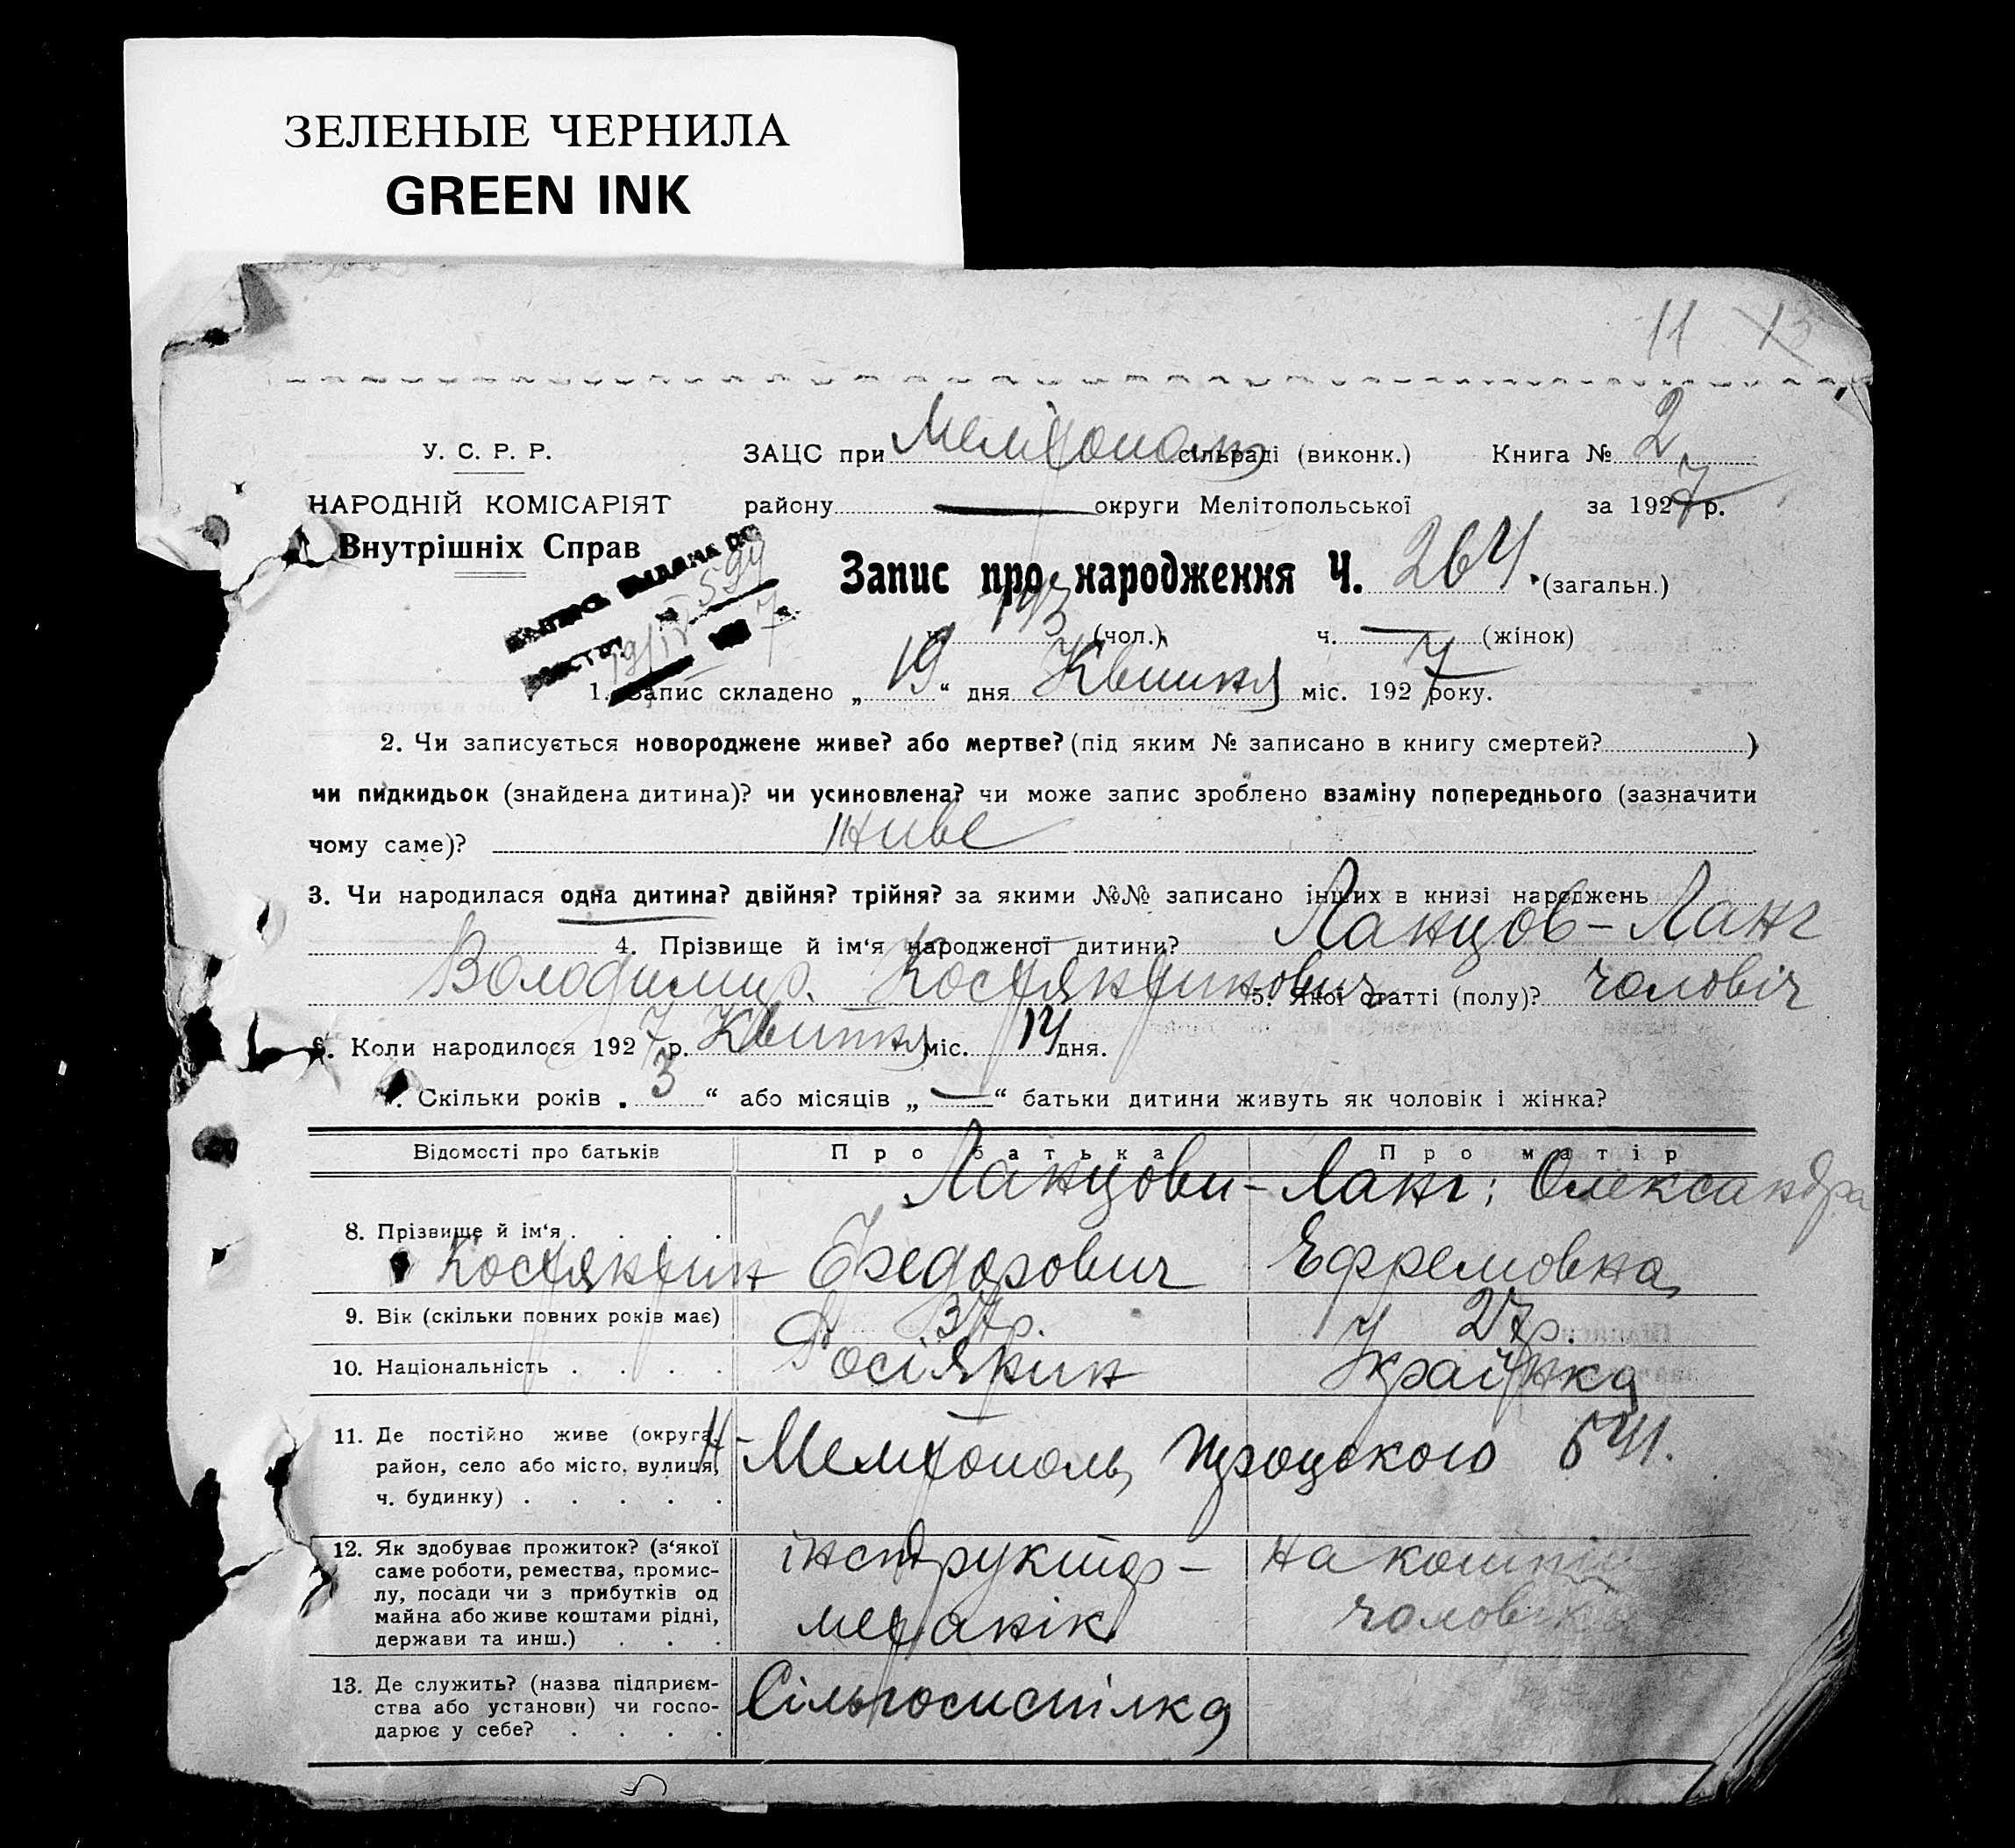 ЗЕЛЕНЫЕ ЧЕРНИЛА
GREEN INK
11 13
У. С. Р. Р. ЗАЦС при Мелітополь сільраді (виконк.) Книга № 2
НАРОДНІЙ КОМІСАРІЯТ району округи Мелітопольської за 1927 р.
Внутрішніх Справ
Запис про народження Ч. 264. (загальн.)
599
19/IV 7
ч. 143 (чол.) ч. — (жінок)
1. Запис складено „ 19 “ дня Квітня міс. 1927 року.
2. Чи записується новороджене живе? або мертве? (під яким № записано в книгу смертей? )
чи пидкидьок (знайдена дитина)? чи усиновлена? чи може запис зроблено взаміну попереднього (зазначити
чому саме)? живе
3. Чи народилася одна дитина? двійня? трійня? за якими №№ записано інших в книзі народжень
4. Прізвище й ім‘я народженої дитини? Ланцов-Ланг
Володимир Костянтинович 5. Якої статті (полу)? чоловіч
6. Коли народилося 1927 р. Квітня міс. 14 дня.
7. Скільки років „ 3 “ або місяців „ — “ батьки дитини живуть як чоловік і жінка?
Відомості про батьків Про батька Про матір
Ланцови-Ланг; Олександра
8. Прізвище й ім‘я
Костянтин Федорович Ефремовна
9. Вік (скільки повних років має) 37 р. 27 р.
10. Національність Росіянин Українка
11. Де постійно живе (округа,
район, село або місто, вулиця, Мелітополь, Троцского 54
ч. будинку)
12. Як здобуває прожиток? (з‘якої інструктор- на кошти
саме роботи, ремества, промис-
лу, посади чи з прибутків од
майна або живе коштами рідні, механік чоловіка
держави та инш.)
13. Де служить? (назва підприєм- Сільгоспспілка
ства або установи) чи госпо-
дарює у себе?